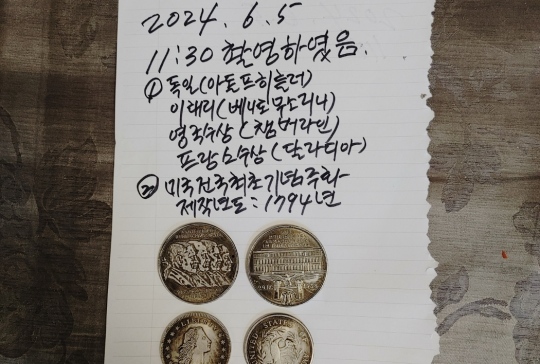 2024. 6. 5
11:30 촬영하였음.
① 독일(아돌프히틀러)
이태리(베니토무소리니)
영국수상(챔버라인)
프랑스수상(달라디아)
② 미국건국최초기념주화
제작년도: 1794년
LIBERTY
STATES